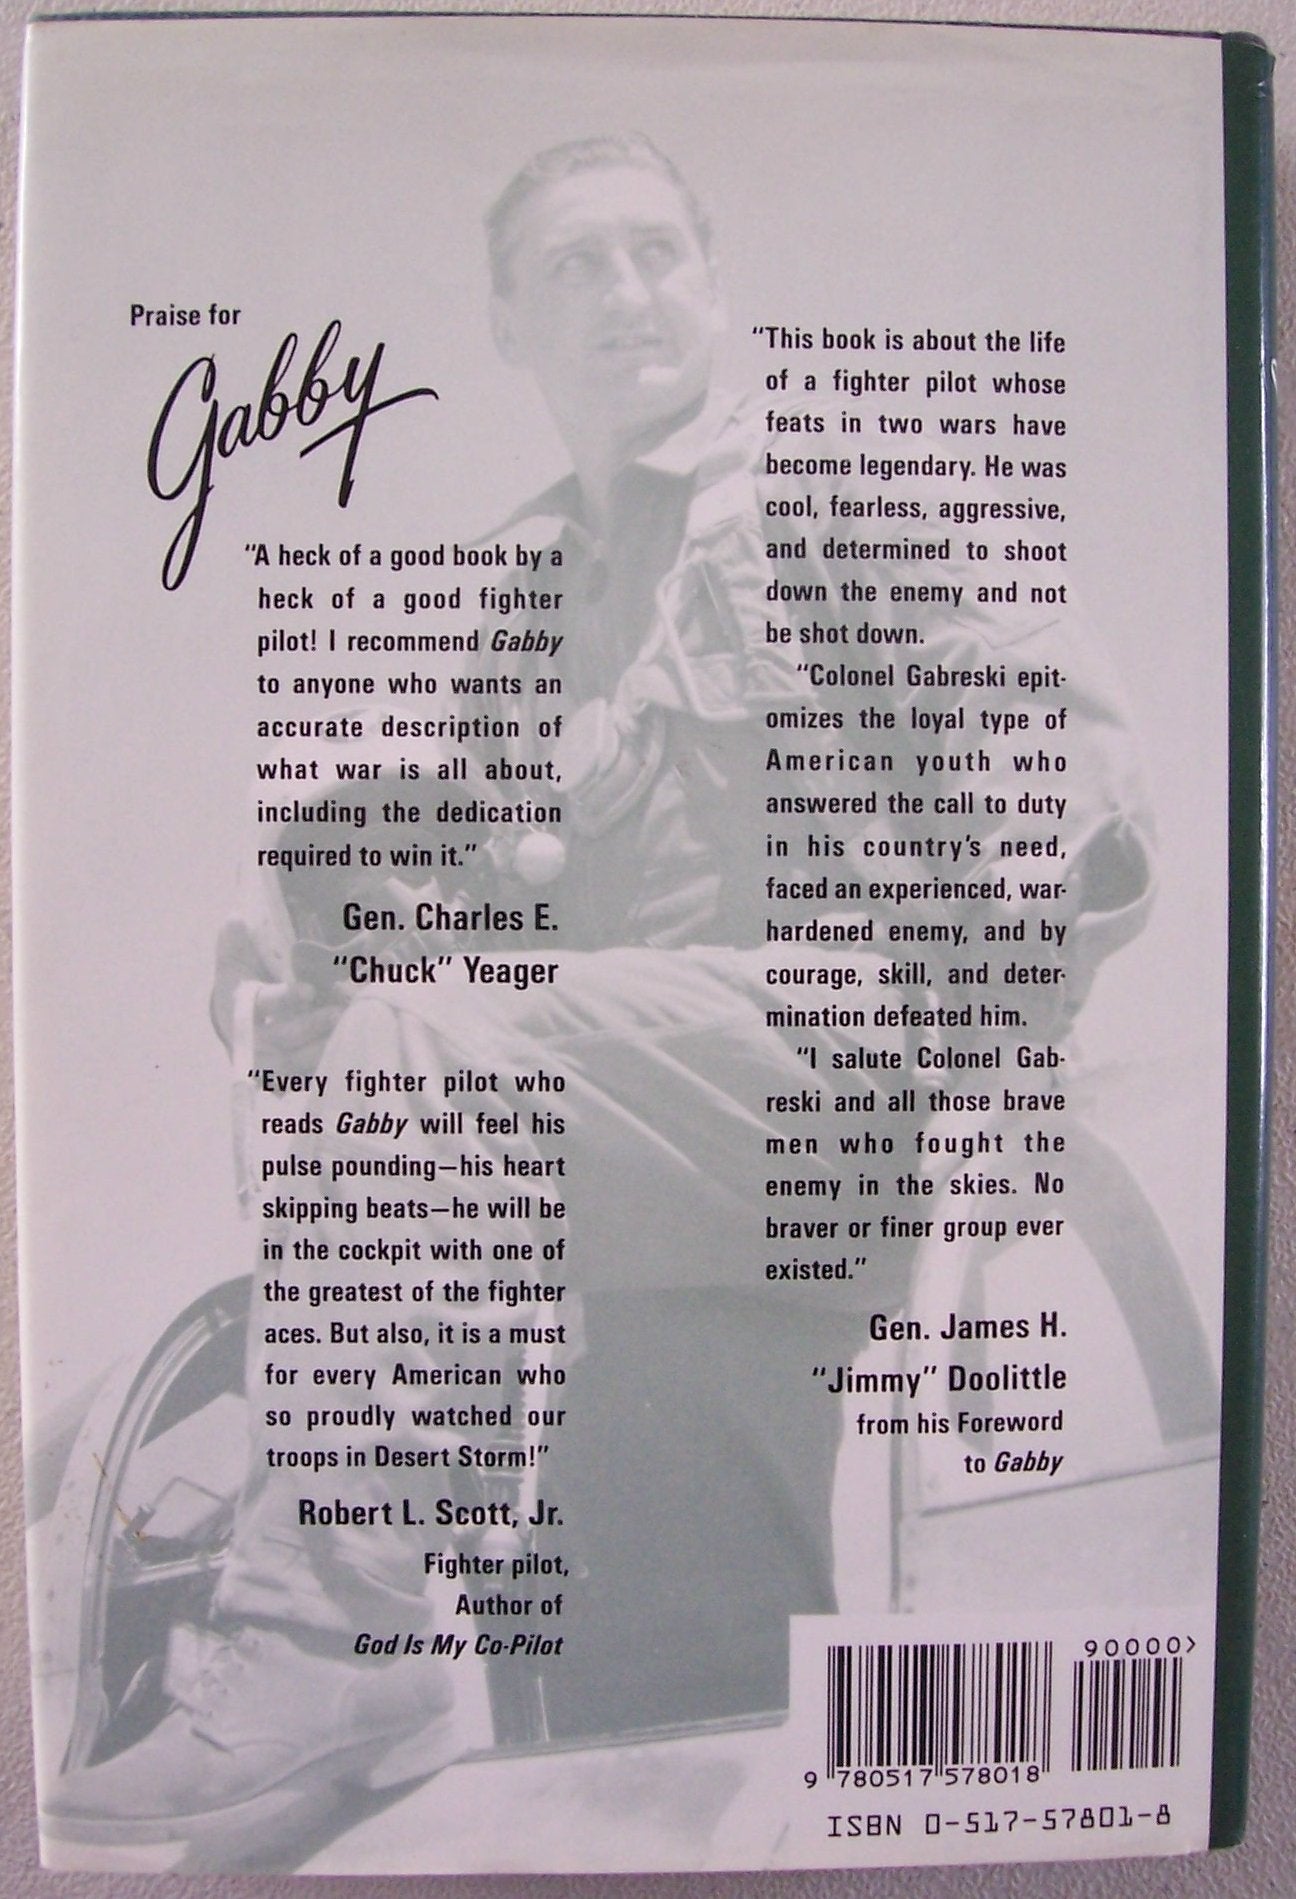 Praise for
Gabby
"A heck of a good book by a
heck of a good fighter
pilot! I recommend Gabby
to anyone who wants an
accurate description of
what war is all about,
including the dedication
required to win it."
Gen. Charles E.
"Chuck" Yeager
"Every fighter pilot who
reads Gabby will feel his
pulse pounding—his heart
skipping beats—he will be
in the cockpit with one of
the greatest of the fighter
aces. But also, it is a must
for every American who
so proudly watched our
troops in Desert Storm!"
Robert L. Scott, Jr.
Fighter pilot,
Author of
God Is My Co-Pilot
"This book is about the life
of a fighter pilot whose
feats in two wars have
become legendary. He was
cool, fearless, aggressive,
and determined to shoot
down the enemy and not
be shot down.
"Colonel Gabreski epit-
omizes the loyal type of
American youth who
answered the call to duty
in his country's need,
faced an experienced, war-
hardened enemy, and by
courage, skill, and deter-
mination defeated him.
"I salute Colonel Gab-
reski and all those brave
men who fought the
enemy in the skies. No
braver or finer group ever
existed."
Gen. James H.
"Jimmy" Doolittle
from his Foreword
to Gabby
90000>
9 780517 578018
ISBN 0-517-57801-8